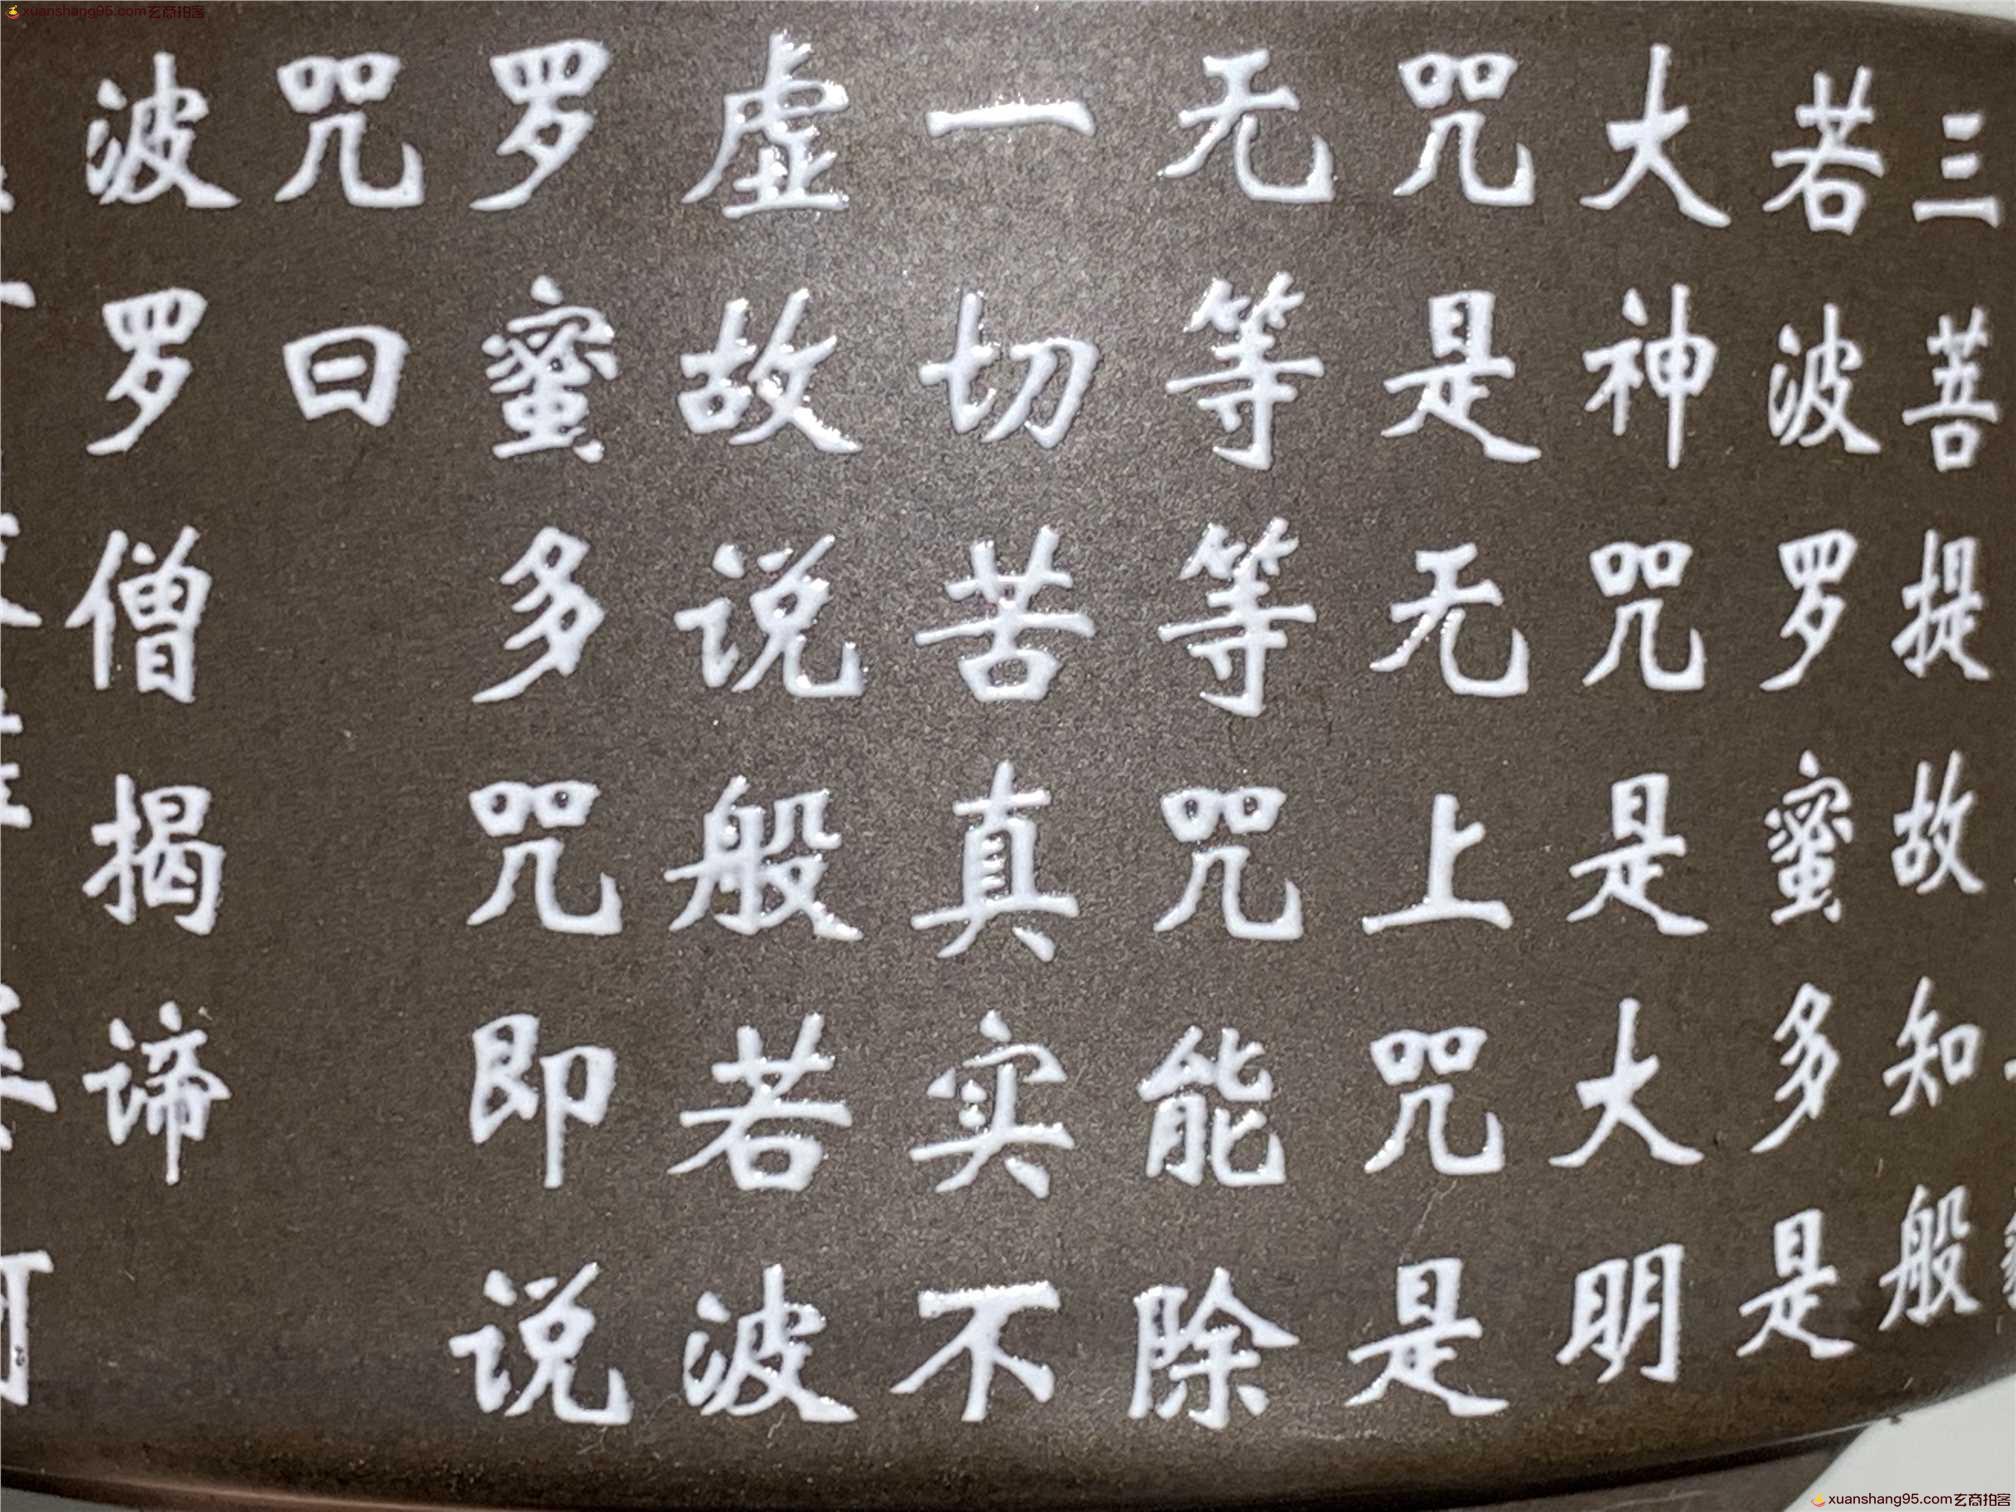 xuanshang95.com玄商拍客
三菩提故知般
若波罗蜜多是
大神咒是大明
咒是无上咒是
无等等咒能除
一切苦真实不
虚故说般若波
罗蜜多咒即说
咒曰
波罗僧揭谛
xuanshang95.com玄商拍客